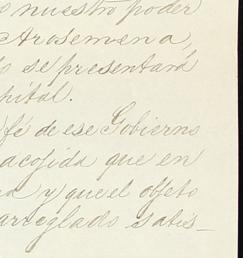 nuestro poder
Arosemena,
se presentará
pital.
fé de ese Gobierno
acojida que en
a y que el objeto
arreglado satis-